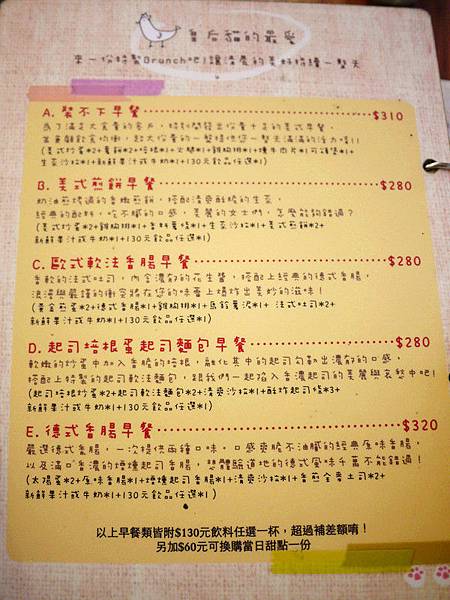 皇后貓的最愛
來一份特製Brunch吧!讓清晨的美好持續一整天
A. 裝不下早餐 $310
為了滿足大食量的客戶,特別開發出份量十足的美式早餐,
(美式炒蛋*2+薯餅*2+培根*1+火腿*1+雞胸排*1+燻牛肉片*1可頌堡*1+
生菜沙拉*1+新鮮果汁或牛奶*1+130元飲品任選*1)
B. 美式煎餅早餐 $280
奶油煎烤過的香嫩煎餅,搭配清爽酸脆的生菜,
經典的配料,吃不膩的口感,美麗的女士們,怎麼能夠錯過?
(美式炒蛋*2+雞胸排*1+香料薯條*1+生菜沙拉*1+美式煎餅*2+
新鮮果汁或牛奶*1+130元飲品任選*1)
C. 歐式軟法香腸早餐 $280
香軟的法式吐司,內含濃郁的花生醬,搭配上經典的德式香腸,
浪漫與嚴謹的衝突將在您的味蕾上爆炸出美妙的滋味!
(黃金煎蛋*2+德式香腸*1+雞胸排*1+馬鈴薯泥*1+ 法式吐司*2+
新鮮果汁或牛奶*1+130元飲品任選*1)
D. 起司培根蛋起司麵包早餐 $280
軟嫩的炒蛋中加入香脆的培根,融化其中的起司勾勒出濃郁的口感,
搭配上特製的起司軟法麵包,跟我們一起陷入香濃起司的美麗與哀愁中吧!
(起司培根炒蛋*2+起司軟法麵包*2+清爽沙拉*1+酥炸起司條*3+
新鮮果汁或牛奶*1+130元飲品任選*1)
E. 德式香腸早餐 $320
嚴選德式香腸,一次提供兩種口味。口感爽脆不油膩的經典原味香腸,
以及滿口香濃的煙燻起司香腸,想體驗道地的德式風味千萬不能錯過!
(太陽蛋*2+原味香腸*1+煙燻起司香腸*1+清爽沙拉*1+香煎全麥土司*2+
新鮮果汁或牛奶*1+130元飲品任選*1 )
以上早餐類皆附$130元飲料任選一杯,超過補差額唷!
另加$60元可換購當日甜點一份